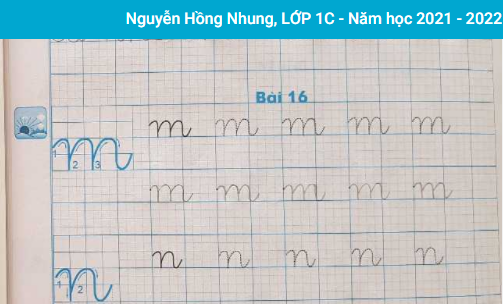 Nguyễn Hồng Nhung, LỚP 1C - Năm học 2021 - 2022
Bài 16
m m m m m m
1 2 3
m m m m m
n n n n n n
1 2